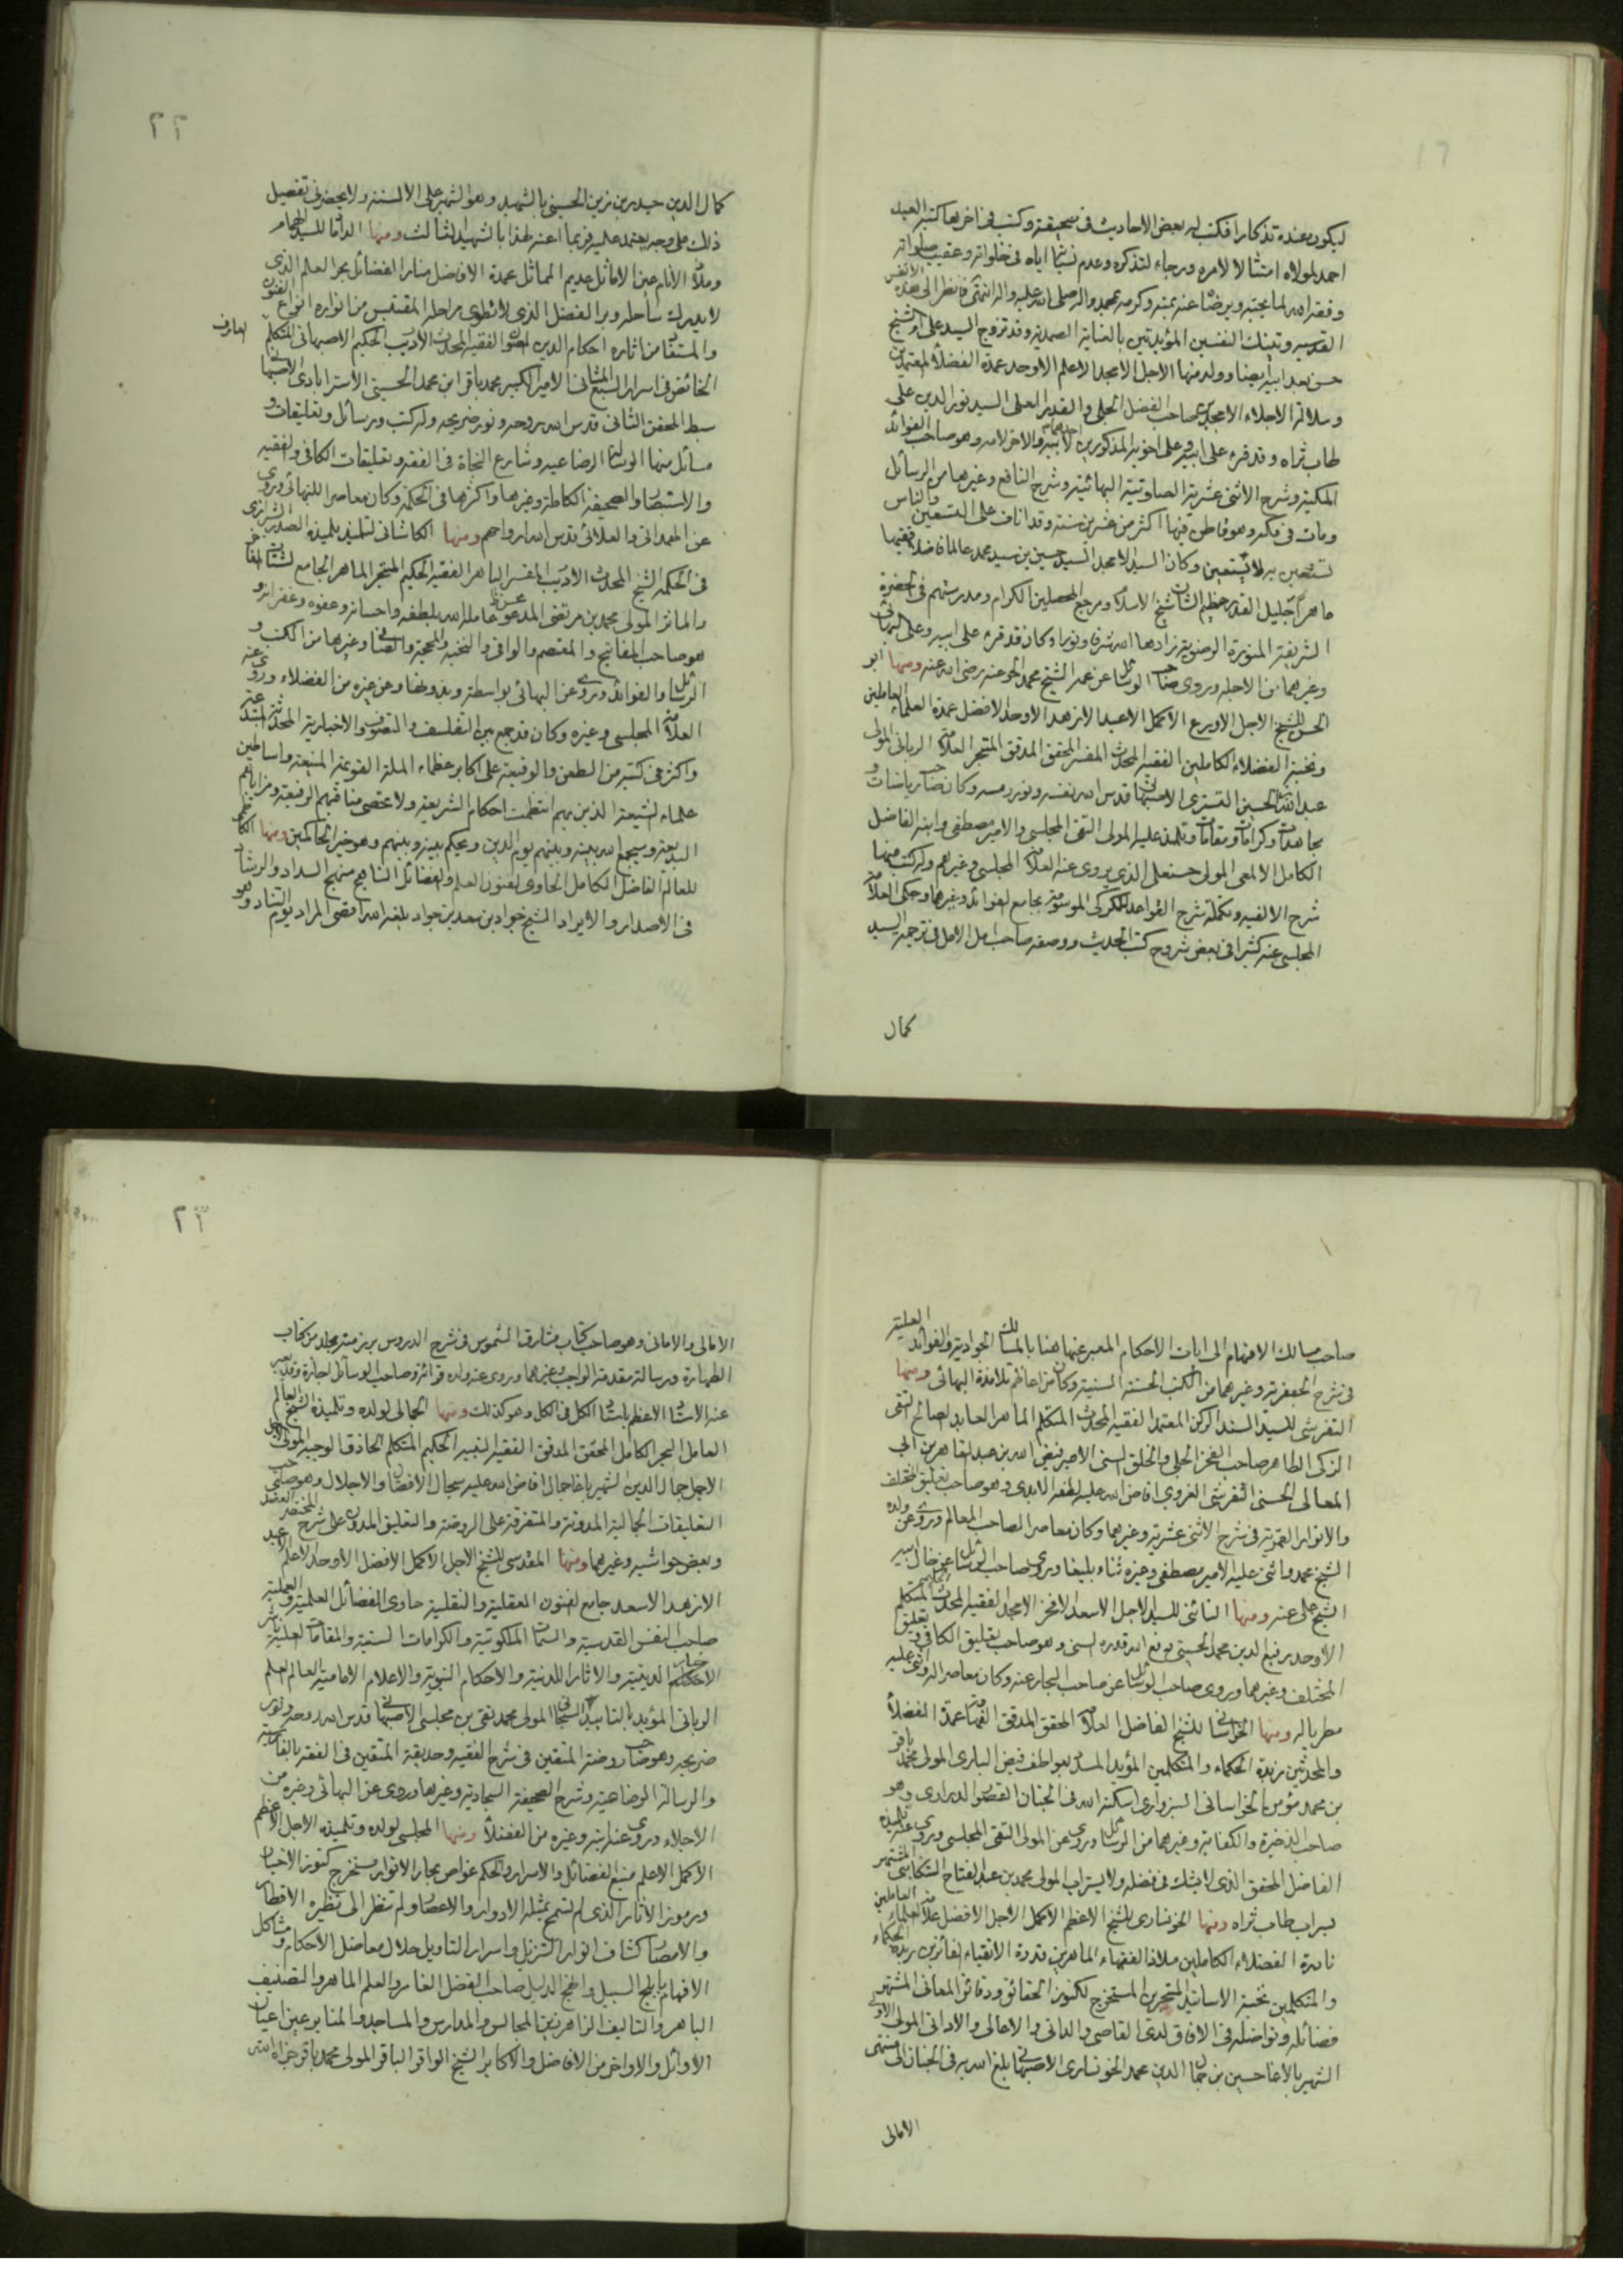 ليكون عنده تذكارا فكتب له بعض الاحاديث في صحيفة وكتب في اخرها كتب العبد
احمد لمولاه امتثالا لامره ورجاء لتذكره وعدم نسيانه اياه في خلواته وعقيب صلواته
وفقه الله لما يحبه ويرضاه عنه بمنه وكرمه بمحمد واله صلى الله عليه واله انتهى فانظر الى هذه الانفس
القدسيه وتينك النفسين المؤيدتين بالعناية الصمدية وقد تزوج السيد على ام الشيخ
حسن بعد ابيه ايضا وولد منها الاجل الامجد الاعلم الاوحد عمدة الفضلا المعتمدين
وسلالة الاجلاء الامجدين صاحب الفضل الجلي والقدر العلي السيد نور الدين علي
طاب ثراه وقد قرء على ابيه وعلى اخويه المذكورين احدهما لابيه والاخر لامه وهو صاحب الفوائد
المكية وشرح الاثنى عشرية الصلوتية البهائية وشرح النافع وغيرها من الرسائل
ومات في مكه وهو قاطن فيها اكثر من عشرين سنة وقد اناف على التسعين والناس
تستعين به لا يستعين وكان السيد الامجد السيد حسين بن سيد محمد عالما فاضلا فقيها
ماهرا جليل القدر عظيم الشان شيخ الاسلام ومرجع المحصلين الكرام ومدرستهم في الحضرة
الشريفة المنورة الرضوية زادها الله شرفا ونورا وكان قد قرء على ابيه وعلى البهائي
وغيرهما من الاجله وروى صاحب الوسائل عن عمه الشيخ محمد الحر عنه رضي الله عنه ومنها ابو
الحسن للشيخ الاجل الاورع الاكمل الاعبد الازهد الاوحد الافضل عمدة العلماء العاملين
ونخبة الفضلاء الكاملين الفقيه المحدث المفسر المحقق المدقق المتبحر العلامة الرباني المولى
عبد الله بن الحسين التستري الاصبهاني قدس الله نفسه ونور رمسه وكان صاحب رياضات و
مجاهدات وكرامات ومقامات وتلمذ عليه المولى التقي المجلسي والامير مصطفى وابنه الفاضل
الكامل الالمعي المولى حسنعلي الذي يروى عنه العلامة المجلسي وغيرهم وله كتب منها
شرح الالفيه وتكملة شرح القواعد للكركي الموسومة بجامع الفوائد وغيرها وحكى العلامة
المجلسي عنه كثيرا في بعض شروح كتب الحديث ووصفه صاحب امل الامل في ترجمة السيد
كمال
٢٢
كمال الدين حيدر بن زين الحسيني بالشهيد وهو الشهير على الالسنة ولا يحضرني تفصيل
ذلك على وجه يعتمد عليه فربما اعبر لهذا بالشهيد الثالث ومنها الداماد للسيد الهمام
وملاذ الأنام عين الاماثل عديم المماثل عمدة الافاضل منار الفضائل بحر العلم الذي
لا يدرك ساحله وبر الفضل الذي لا تطوى مراحله المقتبس من انواره انواع الفنون
والمستفاد من اثاره احكام الدين المصون الفقيه المحدث الاديب الحكيم الاصبهاني المتكلم العارف
الخائض في اسرار السبع المثاني الامير الكبير محمد باقر ابن محمد الحسيني الاسترابادي الاصبهاني
سبط المحقق الثاني قدس الله روحه ونور ضريحه وله كتب ورسائل وتعليقات و
مسائل منها الرسالة الرضاعيه وشارع النجاة في الفقه وتعليقات الكافي والفقيه
والاستبصار والصحيفة الكاملة وغيرها واكثرها في الحكمة وكان معاصرا للبهائي ويروى
عن الهمداني والعلائي قدس الله ارواحهم ومنها الكاشاني لتلميذه الصدر الشيرازي
في الحكمة الشيخ المحدث الاديب المفسر الباهر الفقيه الحكيم المتبحر الماهر الجامع لشتات المفاخر
والماثر المولى محمد بن مرتضى المدعو بمحسن عامله الله بلطفه واحسانه وعفوه وغفرانه و
هو صاحب المفاتيح والمعتصم والوافي والنخبة والمحجة والصافي وغيرها من الكتب و
الرسائل والفوائد ويروى عن البهائي بواسطة وبدونها وعن غيره من الفضلاء وروى عنه
العلامة المجلسي وغيره وكان قد جمع بين التفلسف والتصوف والاخبارية المحدثة المبتدعة
واكثر في كتبه من الطعن والوقيعة على اكابر عظماء الملة القويمة المنيعة واساطين
علماء الشيعة الذين بهم انتظمت احكام الشريعة ولا تحصى مناقبهم الرفيعة ومزاياهم
البديعة وسيجمع الله بينه وبينهم يوم الدين ويحكم بينه وبينهم وهو خير الحاكمين ومنها الكاظمي
للعالم الفاضل الكامل الحاوي لفنون العلم والفضائل الناهج منهج السداد والرشاد
في الاصدار والايراد الشيخ جواد بن سعد بن جواد بلغه الله اقصى المراد يوم التناد وهو
صاحب مسالك الافهام الى ايات الاحكام المعبر عنها هنا بالمسالك الجوادية والفوائد العلية
في شرح الجعفرية وغيرهما من الكتب الحسنة السنية وكان من اعاظم تلامذة البهائي ومنها
التفرشي للسيد السند الركن المعتمد الفقيه المحدث المتكلم الماهر العابد الصالح التقي
الزكي الطاهر صاحب الفخر الجلي والخلق السني الامير فيض الله بن عبد القاهر بن ابي
المعالي الحسني التفرشي الغروي افاض الله عليه لطفه الابدي وهو صاحب تعليق المختلف
والانوار القمرية في شرح الاثنى عشرية وغيرهما وكان معاصرا لصاحب المعالم وروى عن ولده
الشيخ محمد واثنى عليه الامير مصطفى وغيره ثناء بليغا وروى صاحب الوسائل عن خال ابيه
الشيخ علي عنه ومنها النائني للسيد الاجل الاسعد الافخر الامجد الفقيه المحدث الحكيم المتكلم
الاوحد رفيع الدين محمد الحسيني رفع الله قدره السني وهو صاحب تعليق الكافي وتعليق
المختلف وغيرهما ويروى صاحب الوسائل عن صاحب البحار عنه وكان معاصرا له واثنى عليه
مطريا له ومنها الخراساني للشيخ الفاضل العلامة المحقق المدقق الفهامة عمدة الفضلاء
والمحدثين زبدة الحكماء والمتكلمين المؤيد المسدد بعواطف فيض الباري المولى محمد باقر
بن محمد مؤمن الخراساني السبزواري اسكنه الله في الجنان القصور الدراري وهو
صاحب الذخيرة والكفاية وغيرهما من الرسائل ويروى عن المولى التقي المجلسي ويروى عنه تلميذه
الفاضل المحقق الذي لا يشك في فضله ولا يستراب المولى محمد بن عبد الفتاح التنكابني المشتهر
بسراب طاب ثراه ومنها الخونساري للشيخ الاعظم الاكمل الاجل الافضل علامة العلماء العاملين
نادرة الفضلاء الكاملين ملاذ الفقهاء الماهرين قدوة الاتقياء الفائزين زبدة الحكماء
والمتكلمين نخبة الاساتيذ المتبحرين المستخرج لكنوز الحقائق ودقائق المعاني المشتهر
فضائله وفواضله في الافاق لدى القاصي والداني والاعالي والاداني المولى الاولى
الشهير بالاغا حسين بن جمال الدين محمد الخونساري الاصبهاني بلغه الله به في الجنان الى منتهى
الامالي
٢٣
الامالي والاماني وهو صاحب كتاب مشارق الشموس في شرح الدروس برز منه مجلد من كتاب
الطهارة ورسالة مقدمة الواجب وغيرهما ويروى عنه ولده قرائة وصاحب الوسائل اجازة وقد يعبر
عنه الاستاد الاعظم باستاد الكل في الكل وهو كذلك ومنها الجمالي لولده وتلميذه الشيخ العالم
العامل البحر الكامل المحقق المدقق الفقيه النبيه الحكيم المتكلم الحاذق الوجيه المولى الاجل
الابجل جمال الدين الشهير باغا جمال افاض الله عليه سجال الافضال والاجلال وهو صاحب
التعليقات الجمالية المدونة والمتفرقة على الروضة والتعليق المدون على شرح المختصر العضدي
وبعض حواشيه وغيرهما ومنها المقدسي للشيخ الاجل الاكمل الافضل الاوحد الاعلم الاعبد
الازهد الاسعد جامع الفنون العقلية والنقلية حاوي الفضائل العلمية والعملية
صاحب النفس القدسية والسمات الملكوتية والكرامات السنية والمقامات العلية ناشر
الاخبار الدينية والاثار اللدنية والاحكام النبوية والاعلام الامامية العالم العلم
الرباني المؤيد بالتاييد السبحاني المولى محمد تقي بن مجلسي الاصبهاني قدس الله روحه ونور
ضريحه وهو صاحب روضة المتقين في شرح الفقيه وحديقة المتقين في الفقه بالفارسية
والرسالة الرضاعية وشرح الصحيفة السجادية وغيرها وروى عن البهائي وغيره من
الاجلاء وروى عنه ابنه وغيره من الفضلاء ومنها المجلسي لولده وتلميذه الاجل الاعظم
الاكمل الاعلم منبع الفضائل والاسرار والحكم غواص بحار الانوار مستخرج كنوز الاخبار
ورموز الاثار الذي لم تسمح بمثله الادوار والاعصار ولم تنظر الى نظيره الاقطار
والامصار كشاف انوار التنزيل واسرار التاويل حلال معاضل الاحكام ومشاكل
الافهام بابلج السبيل وانهج الدليل صاحب الفضل الغامر والعلم الماهر والتصنيف
الباهر والتاليف الزاهر زين المجالس والمدارس والمساجد والمنابر عين اعيان
الاوائل والاواخر من الافاضل والاكابر الشيخ الواقر الباقر المولى محمد باقر جزاه الله